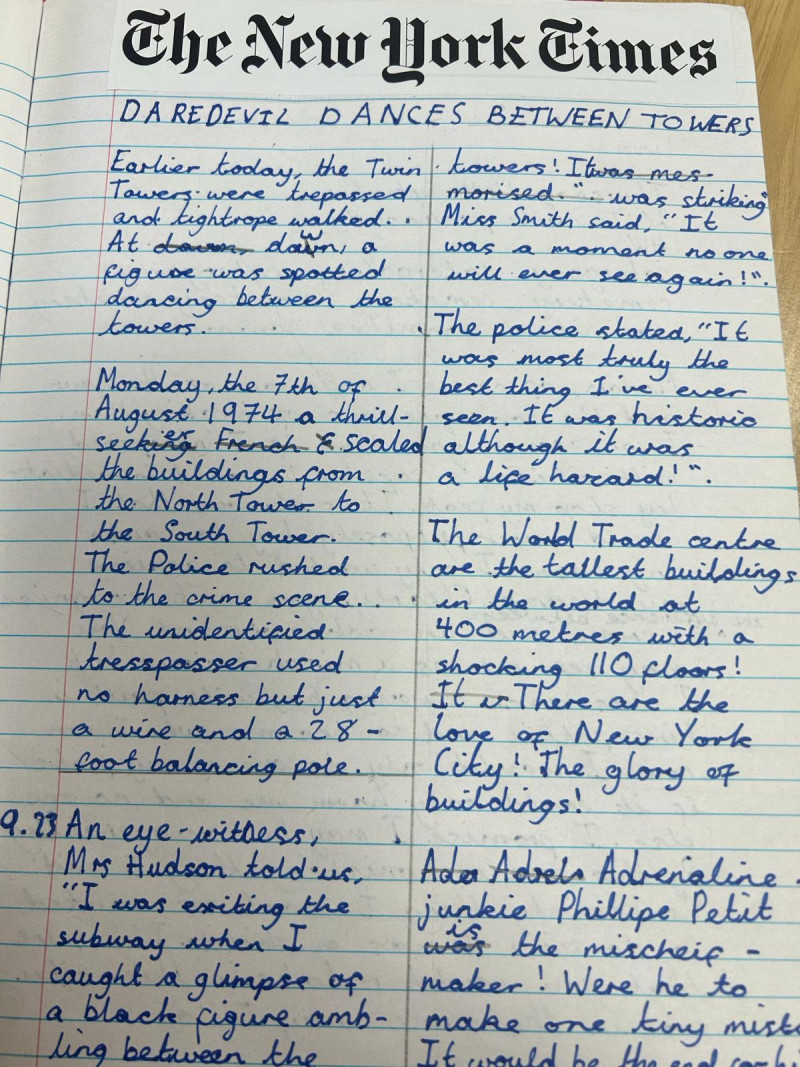 The New York Times
DAREDEVIL DANCES BETWEEN TOWERS
Earlier today, the Twin
Towers were trepassed
and tightrope walked.
At dawn, dawn, a
figure was spotted
dancing between the
towers.
Monday, the 7th of
August 1974 a thrill-
seeking er French & scaled
the buildings from
the North Tower to
the South Tower.
The Police rushed
to the crime scene..
The unidentified
tresspasser used
no harness but just
a wire and a 28-
foot balancing pole.
9.23 An eye-witness,
Mrs Hudson told us,
"I was exiting the
subway when I
caught a glimpse of
a black figure amb-
ling between the
towers! It was mes-
morised.". was striking"
Miss Smith said, "It
was a moment no one
will ever see again!".
The police stated, "It
was most truly the
best thing I've ever
seen. It was historic
although it was
a life hazard!".
The World Trade centre
are the tallest buildings
in the world at
400 metres with a
shocking 110 floors!
It is There are the
love of New York
City! The glory of
buildings!
Ada Adrels Adrenaline
junkie Phillipe Petit
was is the mischeif-
maker! Were he to
make one tiny mist
It would be the end